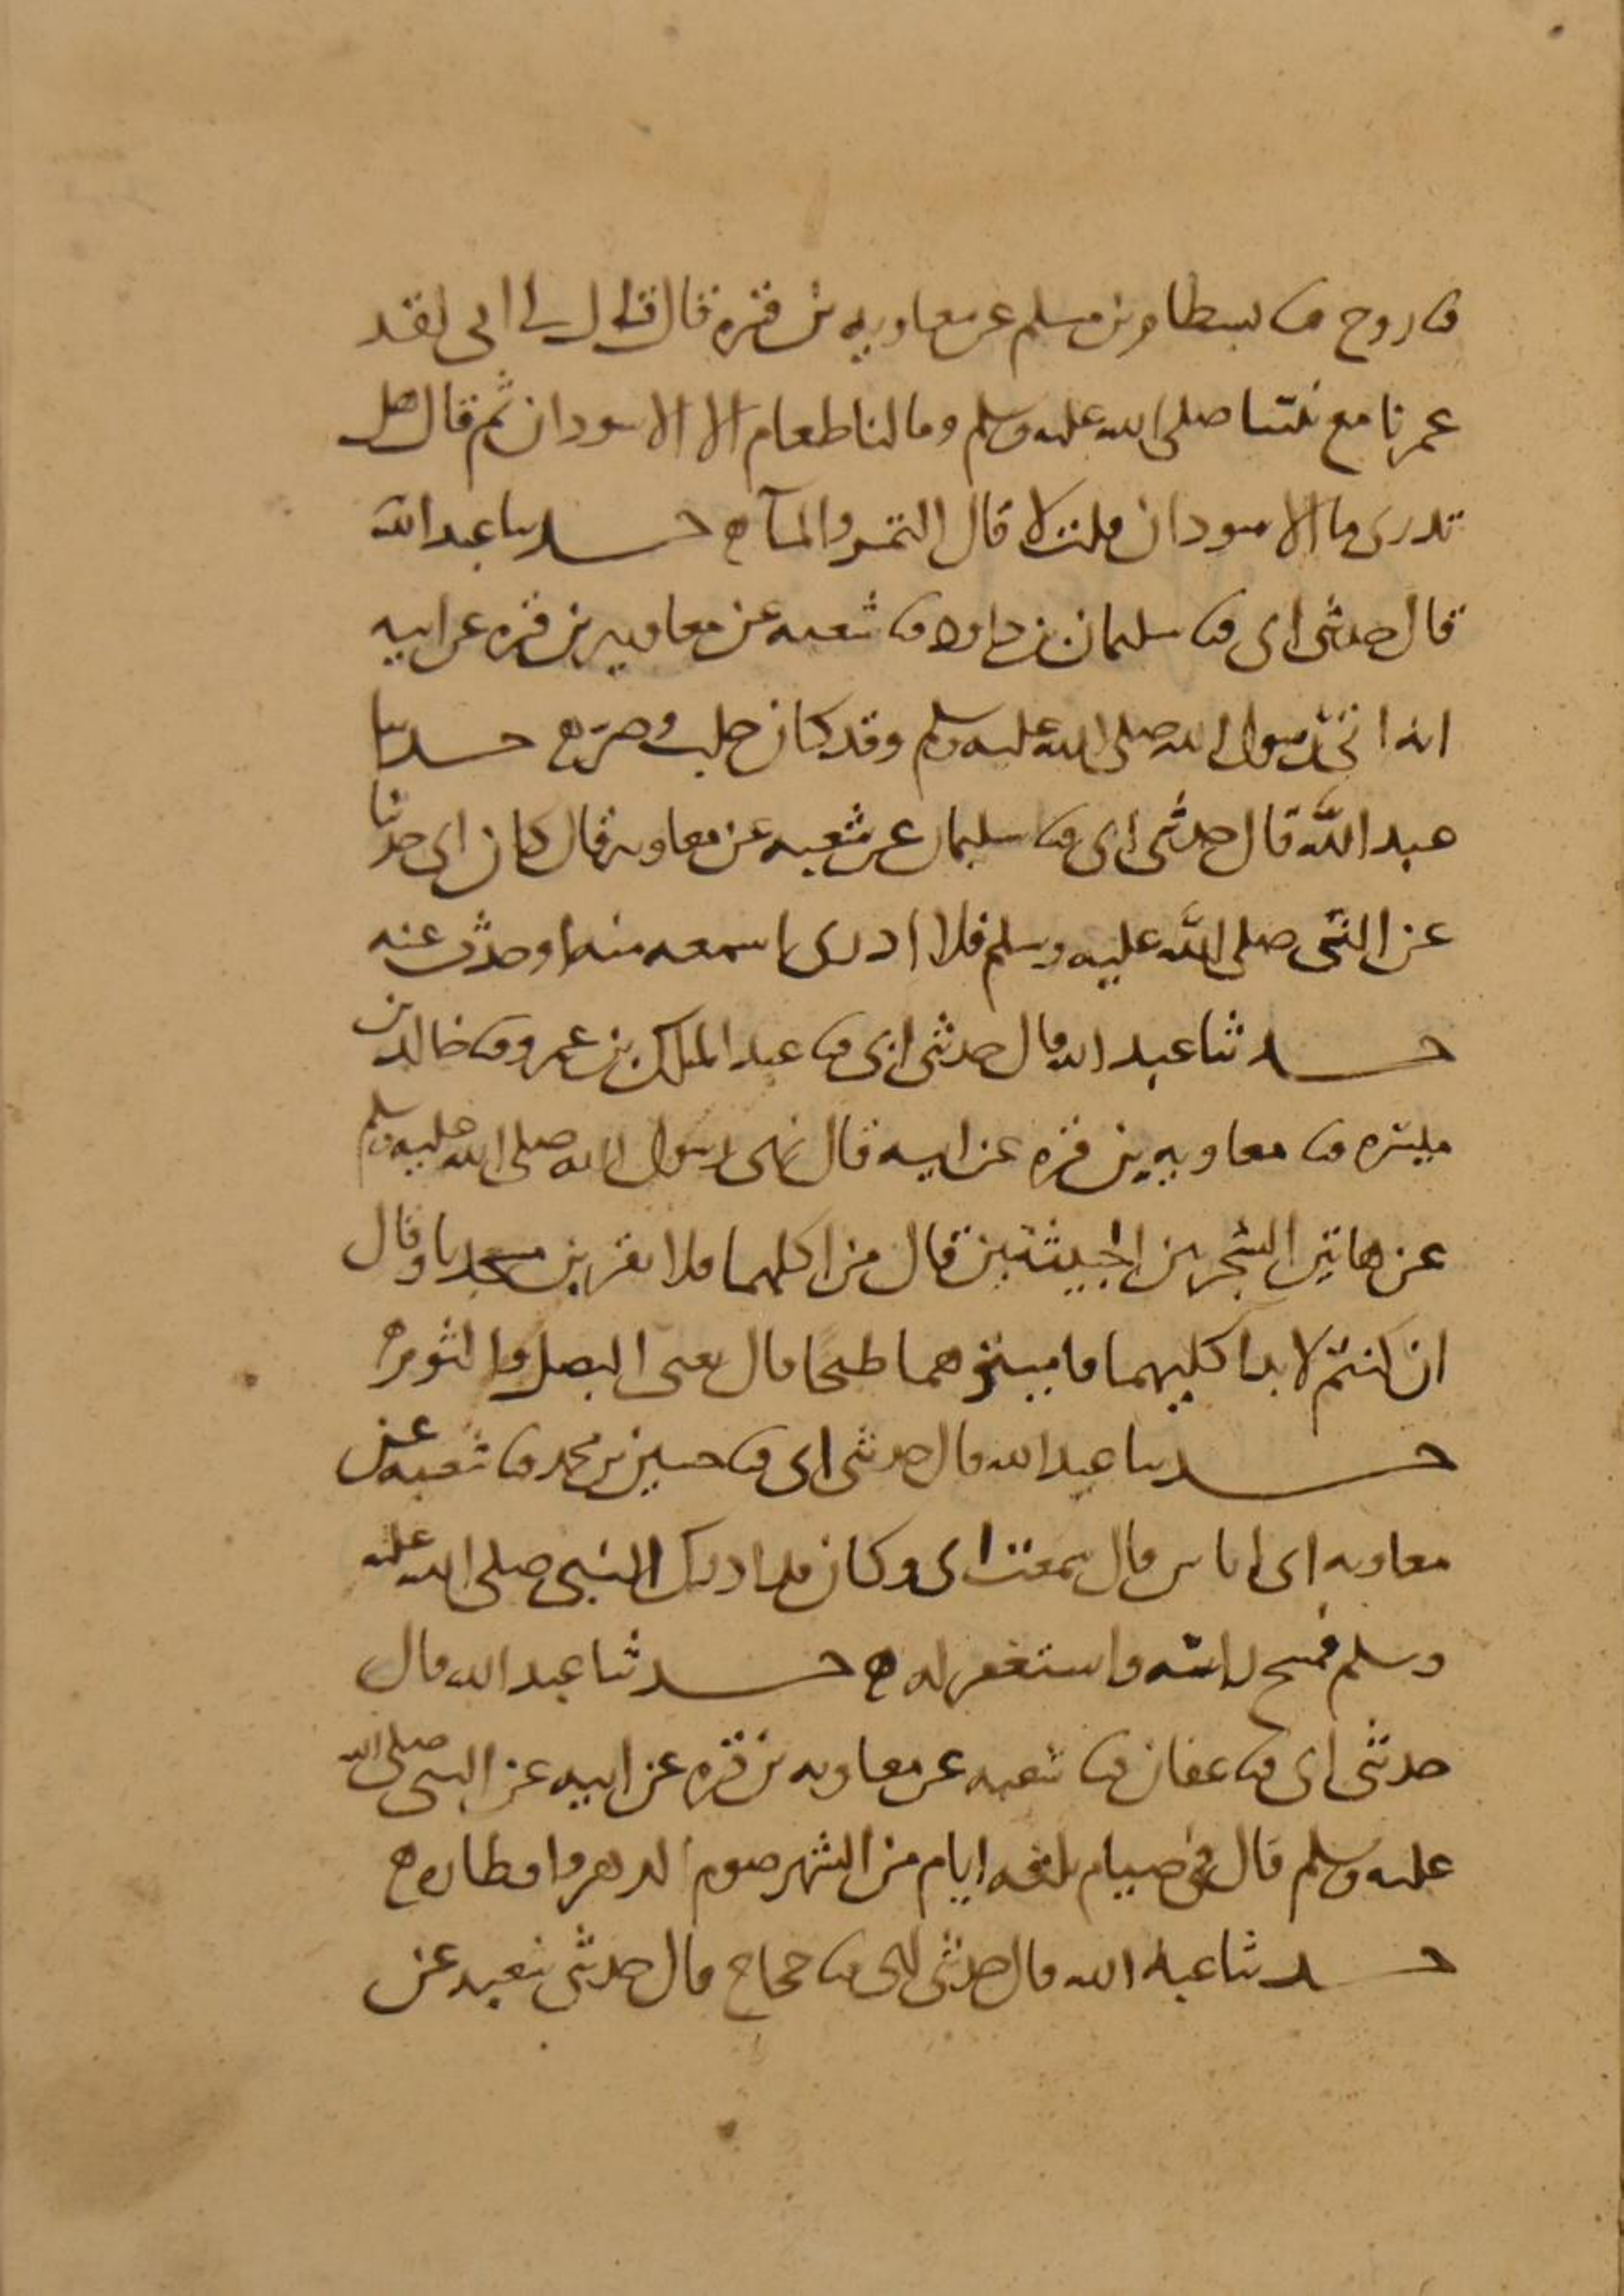 ثنا روح ثنا بسطام بن مسلم عن معاوية بن قرة قال قال لي ابي لقد
عمرنا مع نبينا صلى الله عليه وسلم وما لنا طعام الا الاسودان ثم قال هل
تدري ما الاسودان قلت لا قال التمر والمآ ه حدثنا عبد الله
قال حدثني ابي ثنا سليمان بن داود ثنا شعبه عن معاويه بن قره عن ابيه
انه اتى رسول الله صلى الله عليه وسلم وقد كان حلب وصر ه حدثنا
عبد الله قال حدثني ابي ثنا سليمان عن شعبه عن معاويه قال كان ابي حدثنا
عن النبي صلى الله عليه وسلم فلا ادري اسمعه منه او حدث عنه
حدثنا عبد الله قال حدثني ابي ثنا عبد الملك بن عمرو ثنا خالد بن
ميسره ثنا معاويه بن قره عن ابيه قال نهى رسول الله صلى الله عليه وسلم
عن هاتين الشجرتين الخبيثتين قال من اكلهما فلا يقربن مسجدنا وقال
ان كنتم لا بد اكليهما فاميتوهما طبخا قال يعني البصل والثوم ه
حدثنا عبد الله قال حدثني ابي ثنا حسين بن محمد ثنا شعبه عن
معاويه ابي اياس قال سمعت ابي وكان قد ادرك النبي صلى الله عليه
وسلم فمسح راسه واستغفر له ه حدثنا عبد الله قال
حدثني ابي ثنا عفان ثنا شعبه عن معاويه بن قره عن ابيه عن النبي صلى الله
عليه وسلم قال في صيام ثلثه ايام من الشهر صوم الدهر وافطاره ه
حدثنا عبد الله قال حدثني ابي ثنا حجاج قال حدثني شعبه عن